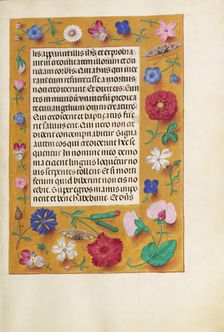 lis apparuit illis ihs et exproba
vit incredulitatem illorum et du
ritiam cordis. Quia his qui vide
rant eum resurrexisse a mortuis
non crediderunt. Et dixit eis. Eun
tes in mundum universum predi
cate evangelium omni creature.
Qui crediderit et baptisatus fue
rit salvus erit. Qui vero non cre
diderit condempnabitur. Signa
autem eos qui crediderint hec
sequentur. In nomine meo demo
nia eicient linguis loquentur no
vis serpentes tollent. Et si mor
tiferum quid biberint non eis no
cebit. Super egros manus impo
nent et bene habebunt. Et dns